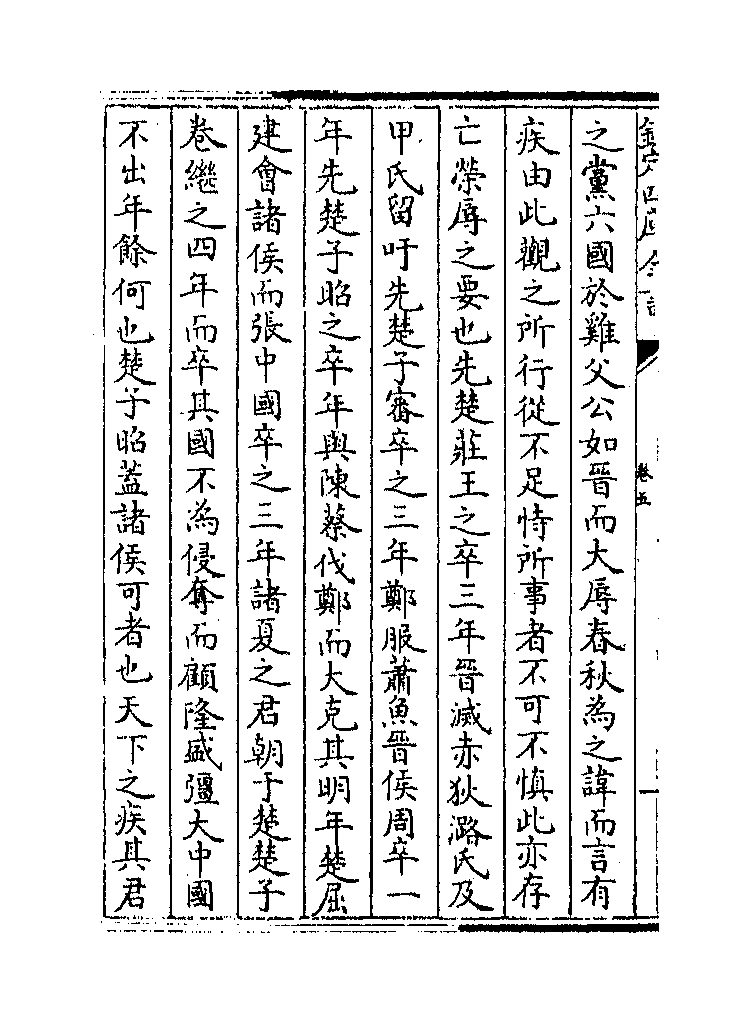 欽定四庫全書
卷五
之黨六國於雞父公如晉而大辱春秋為之諱而言有
疾由此觀之所行從不足恃所事者不可不慎此亦存
亡榮辱之要也先楚莊王之卒三年晉滅赤狄潞氏及
甲氏留吁先楚子審卒之三年鄭服蕭魚晉侯周卒一
年先楚子昭之卒年與陳蔡伐鄭而大克其明年楚屈
建會諸侯而張中國卒之三年諸夏之君朝于楚楚子
卷繼之四年而卒其國不為侵奪而顧隆盛彊大中國
不出年餘何也楚子昭蓋諸侯可者也天下之疾其君